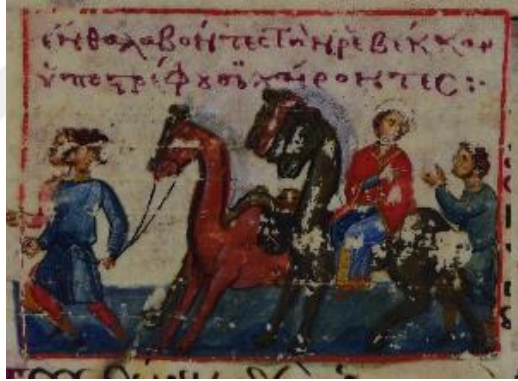 ἔνθα λαβόντες τὴν ρεβέκκαν
ὑποστρέφουσι χαίροντες :